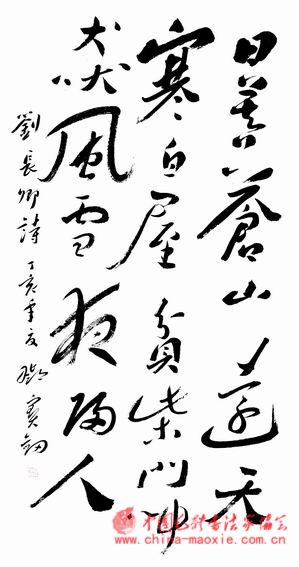 日暮蒼山遠天
寒白屋貧柴門聞
犬吠風雪夜歸人
劉長卿詩 丁亥 鄧寶劍
www.china-maoxie.com